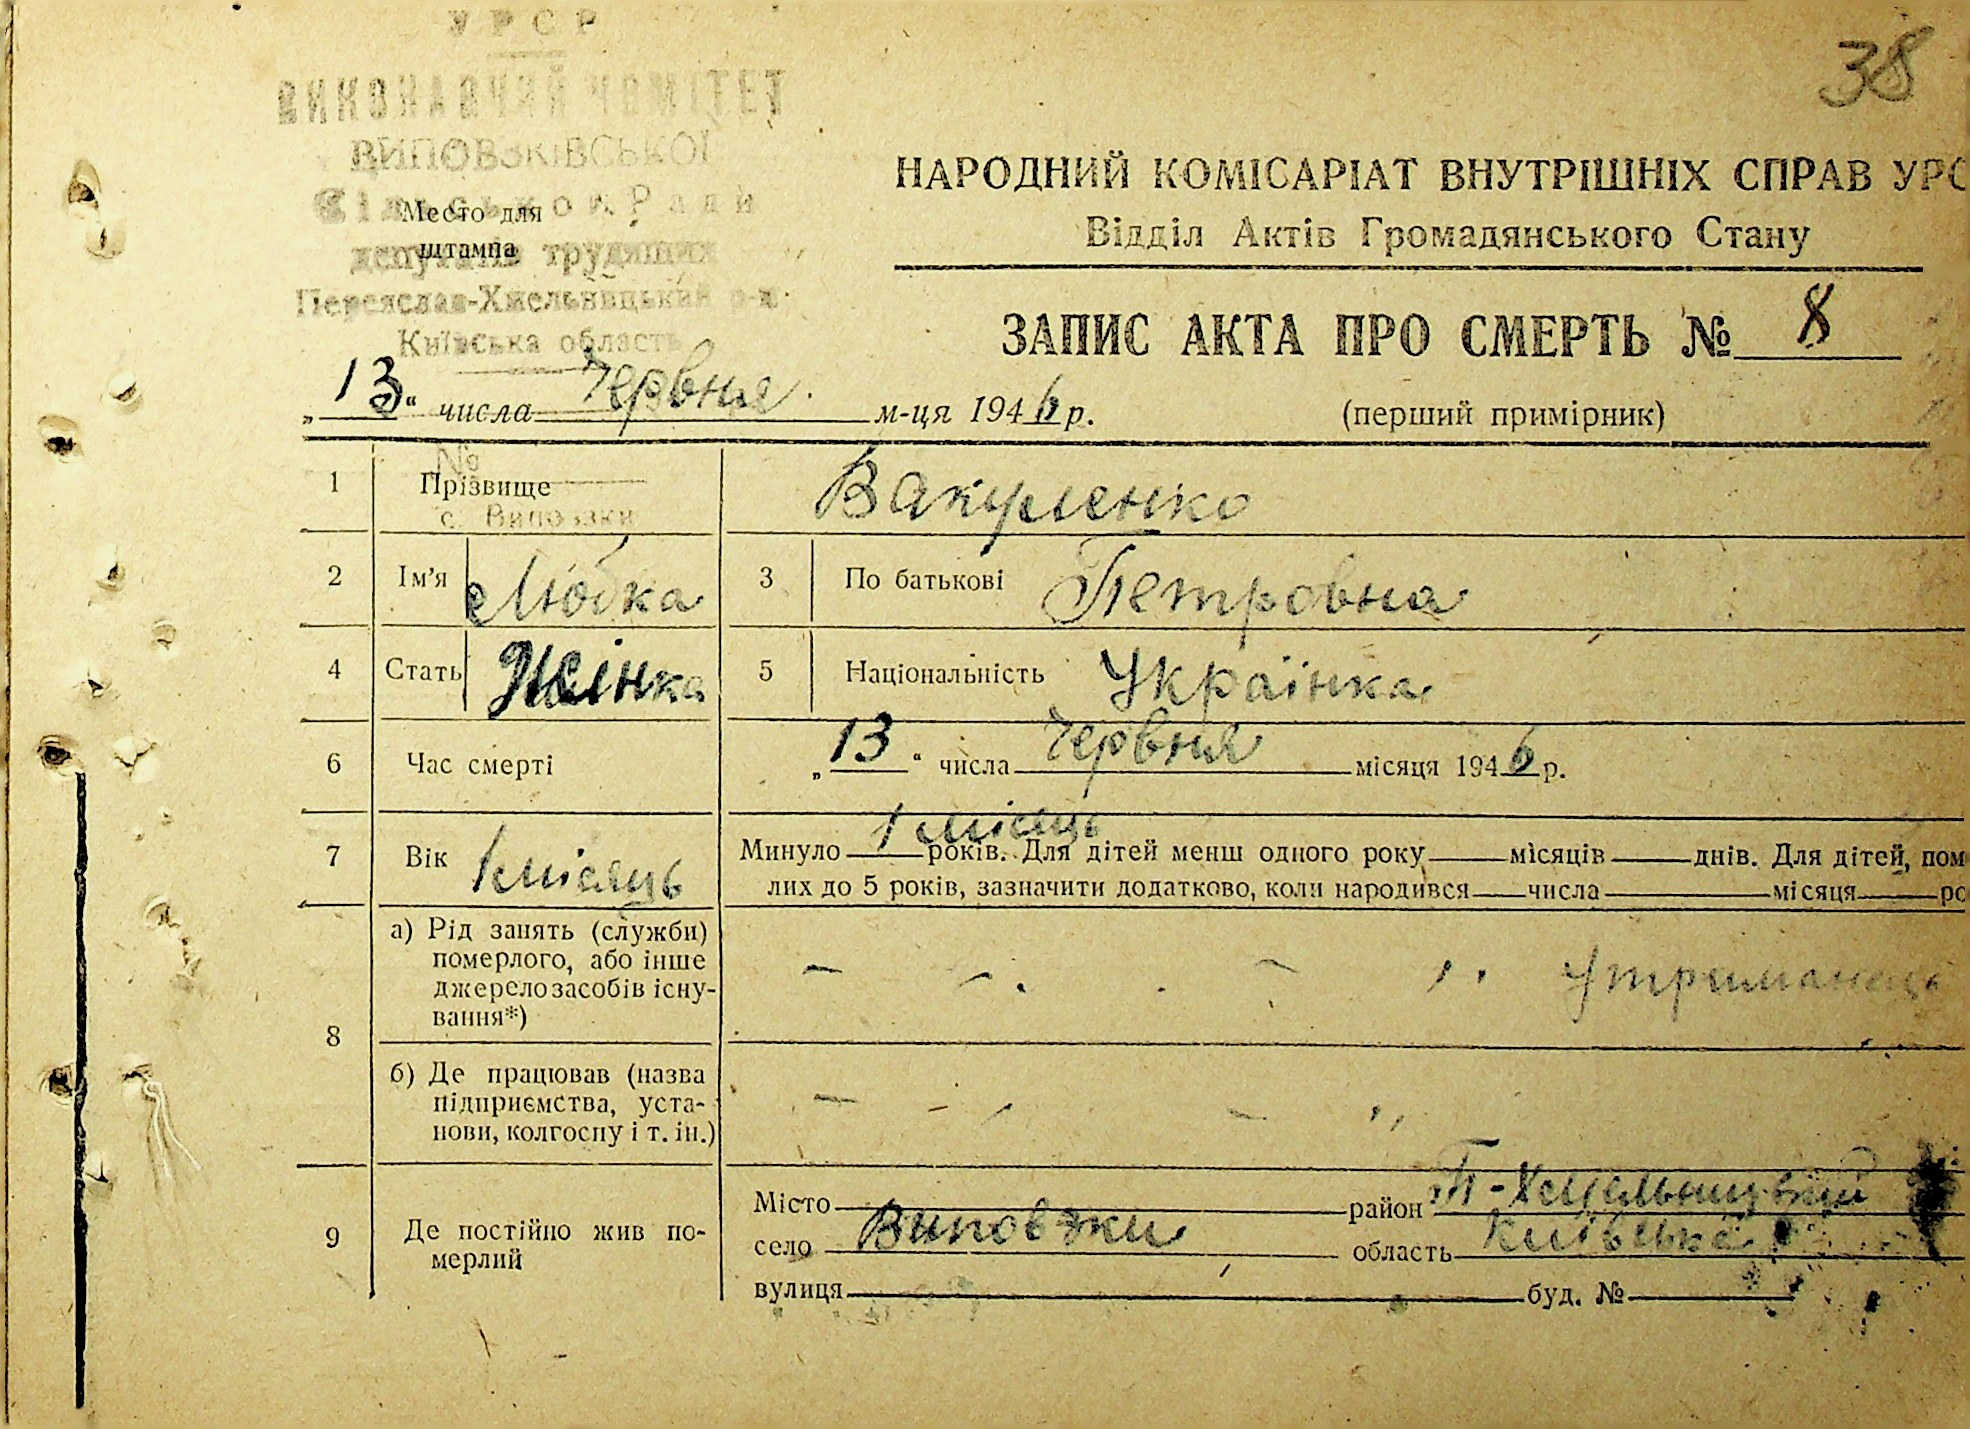 38
УРСР
ВИКОНАВЧИЙ КОМІТЕТ
ВИПОВЗКІВСЬКОЇ
Сільської Ради
депутатів трудящих
Переяслав-Хмельницький р-н
Київська область
Место для
штампа
НАРОДНИЙ КОМІСАРІАТ ВНУТРІШНІХ СПРАВ УРС
Відділ Актів Громадянського Стану
ЗАПИС АКТА ПРО СМЕРТЬ № 8
„13“ числа Червня м-ця 1946 р.
(перший примірник)
№
с. Виповзки
1 Прізвище Вакуленко
2 Ім’я Любка 3 По батькові Петровна
4 Стать Жінка 5 Національність Українка
6 Час смерті „13“ числа Червня місяця 1946 р.
7 Вік 1 місяць Минуло 1 місяць років. Для дітей менш одного року місяців днів. Для дітей, пом
лих до 5 років, зазначити додатково, коли народився числа місяця ро
8 а) Рід занять (служби)
померлого, або інше
джерело засобів існу-
вання*) Утриманець
б) Де працював (назва
підприємства, уста-
нови, колгоспу і т. ін.)
9 Де постійно жив по-
мерлий
Місто район П-Хмельницький
село Виповзки область Київська
вулиця буд. №